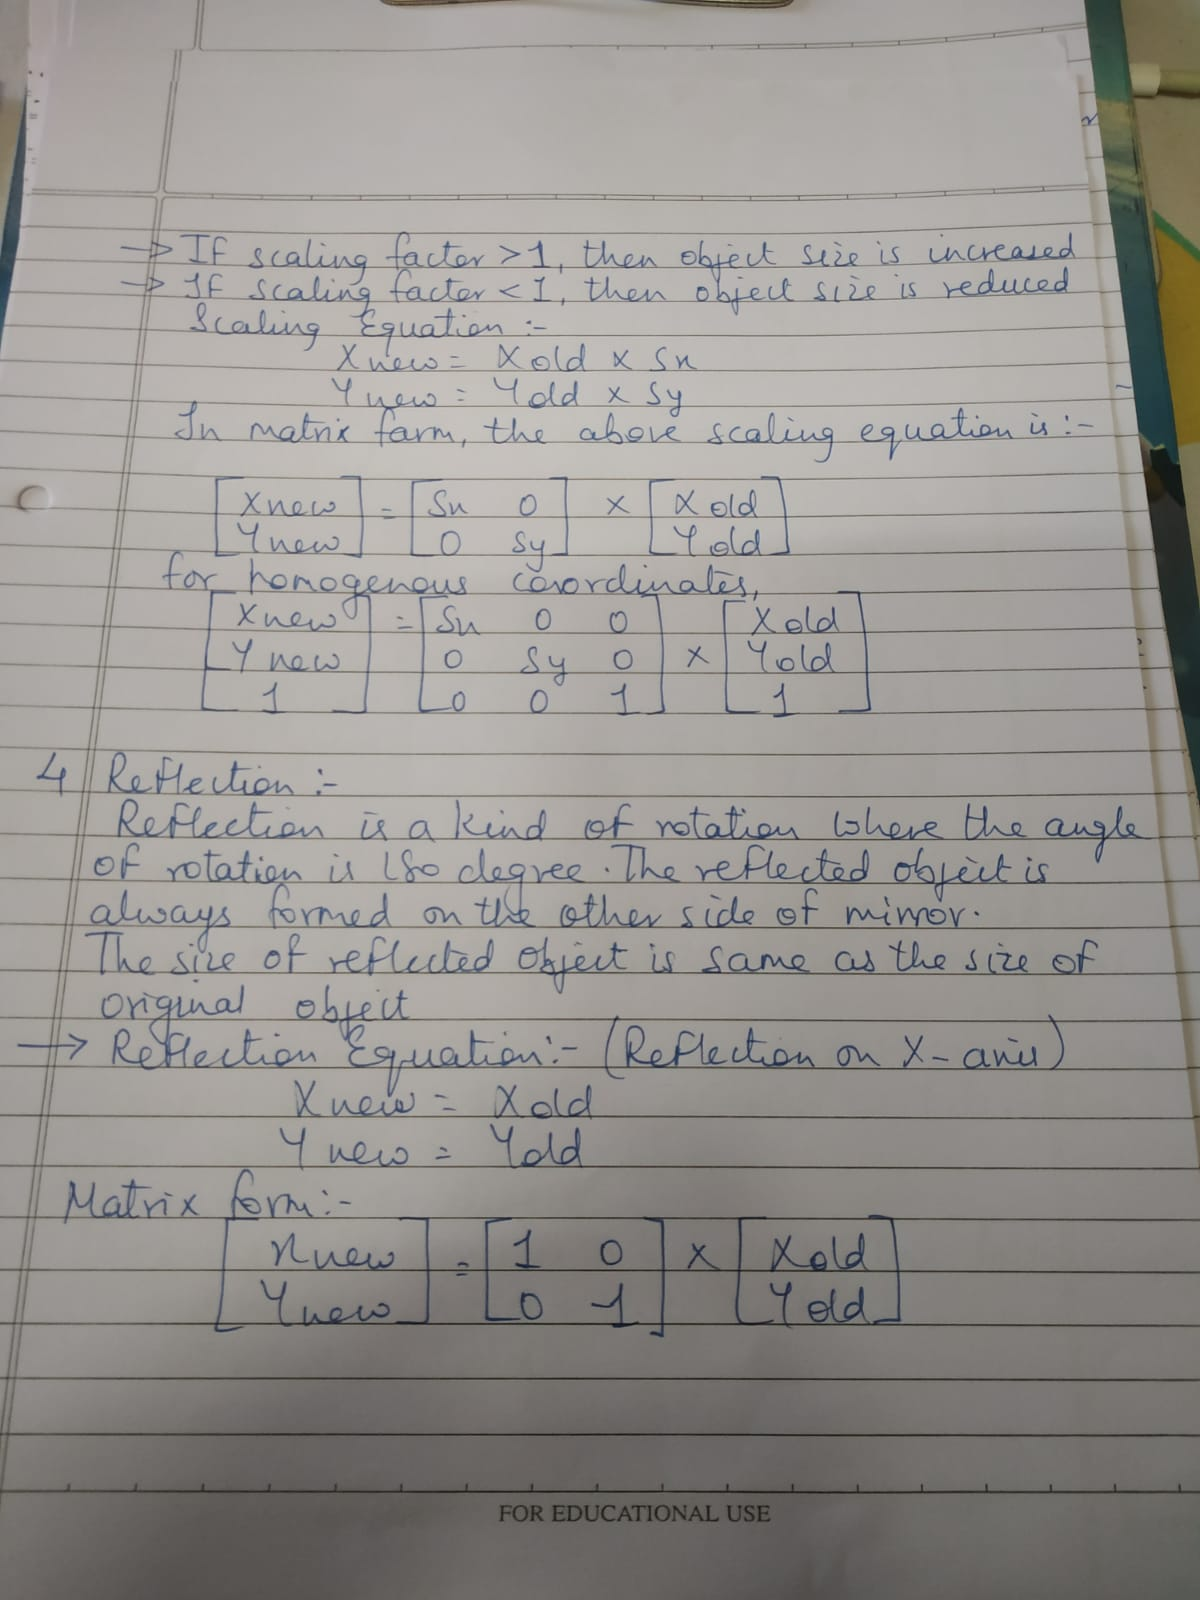 → If scaling factor > 1, then object size is increased
→ If scaling factor < 1, then object size is reduced
Scaling Equation :-
Xnew = Xold x Sx
Ynew = Yold x Sy
In matrix form, the above scaling equation is :-
[Xnew] = [Sx 0] x [Xold]
[Ynew] [0 Sy] [Yold]
for homogenous coordinates,
[Xnew] = [Sx 0 0] [Xold]
[Ynew] [0 Sy 0] x [Yold]
[1] [0 0 1] [1]
4 Reflection :-
Reflection is a kind of rotation where the angle
of rotation is 180 degree. The reflected object is
always formed on the other side of mirror.
The size of reflected object is same as the size of
original object
→ Reflection Equation :- (Reflection on X-axis)
Xnew = Xold
Ynew = Yold
Matrix form :-
[Xnew] = [1 0] x [Xold]
[Ynew] [0 -1] [Yold]
FOR EDUCATIONAL USE